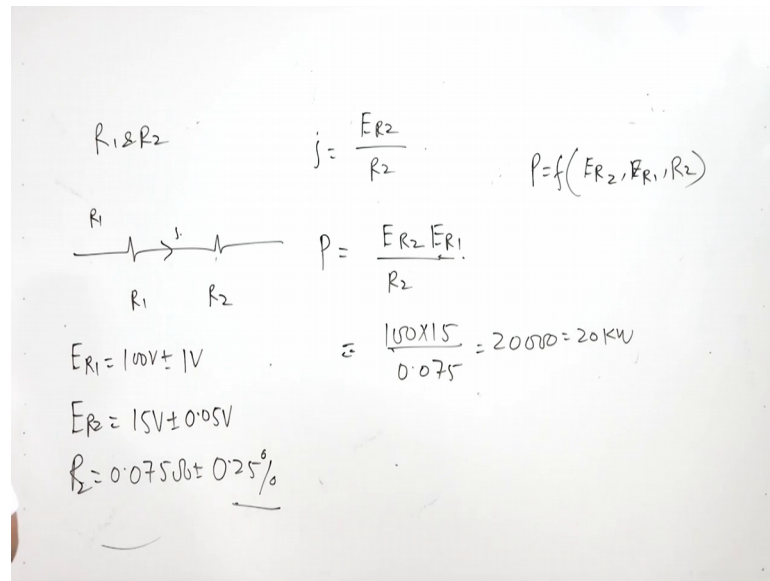 R1&R2
j = ER2 / R2
P=f(ER2, ER1, R2)
R1
j.
R1 R2
P = ER2 ER1 / R2
= 100X15 / 0.075 = 20000 = 20KW
ER1 = 100V ± 1V
ER2 = 15V ± 0.05V
R2 = 0.075Ω ± 0.25%